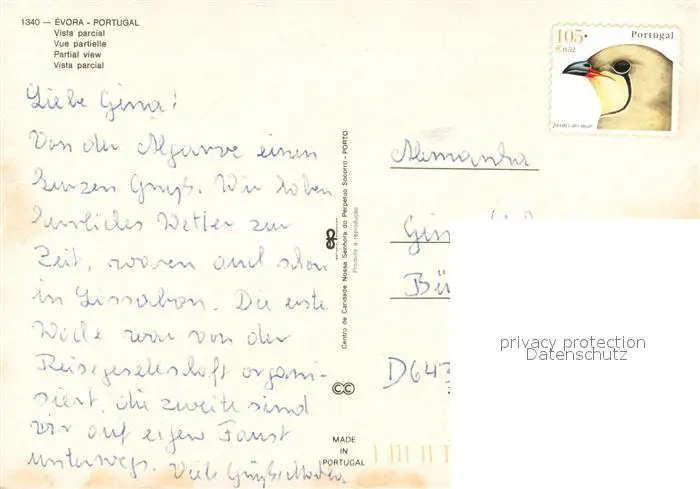 1340 — ÉVORA - PORTUGAL
Vista parcial
Vue partielle
Partial view
Vista parcial
105•
€0,52
Portugal
perdiz do mar
Liebe Gina!
Von der Algarve einen
kurzen Gruß. Wir haben
herrliches Wetter zur
Zeit, waren auch schon
in Lissabon. Die erste
Woche war von der
Reisegesellschaft organi-
siert, die zweite sind
wir auf eigene Faust
unterwegs. Viele Grüße
Centro de Caridade Nossa Senhora do Perpetuo Socorro - PORTO
Prohibite a reprodução
ep
CC
MADE
IN
PORTUGAL
Alemanha
Gin
Bü
D643
privacy protection
Datenschutz